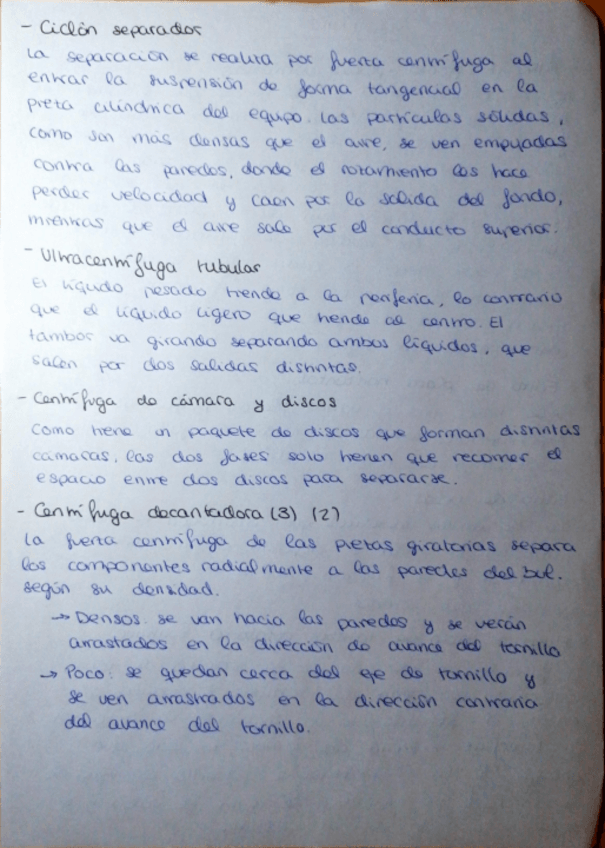 - Ciclón separador
La separación se realiza por fuerza centrífuga al
entrar la suspensión de forma tangencial en la
pieza cilíndrica del equipo. Las partículas sólidas,
como son más densas que el aire, se ven empujadas
contra las paredes, donde el rozamiento les hace
perder velocidad y caen por la salida del fondo,
mientras que el aire sale por el conducto superior.
- Ultracentrífuga tubular
El líquido pesado tiende a la periferia, lo contrario
que el líquido ligero que tiende al centro. El
tambor va girando separando ambos líquidos, que
salen por dos salidas distintas.
- Centrífuga de cámara y discos
Como tiene un paquete de discos que forman distintas
cámaras, las dos fases solo tienen que recorrer el
espacio entre dos discos para separarse.
- Centrífuga decantadora (3) (2)
La fuerza centrífuga de las piezas giratorias separa
los componentes radialmente a las paredes del bul.
según su densidad.
→ Densos: se van hacia las paredes y se verán
arrastados en la dirección de avance del tornillo
→ Poco: se quedan cerca del eje de tornillo y
se ven arrastrados en la dirección contraria
del avance del tornillo.